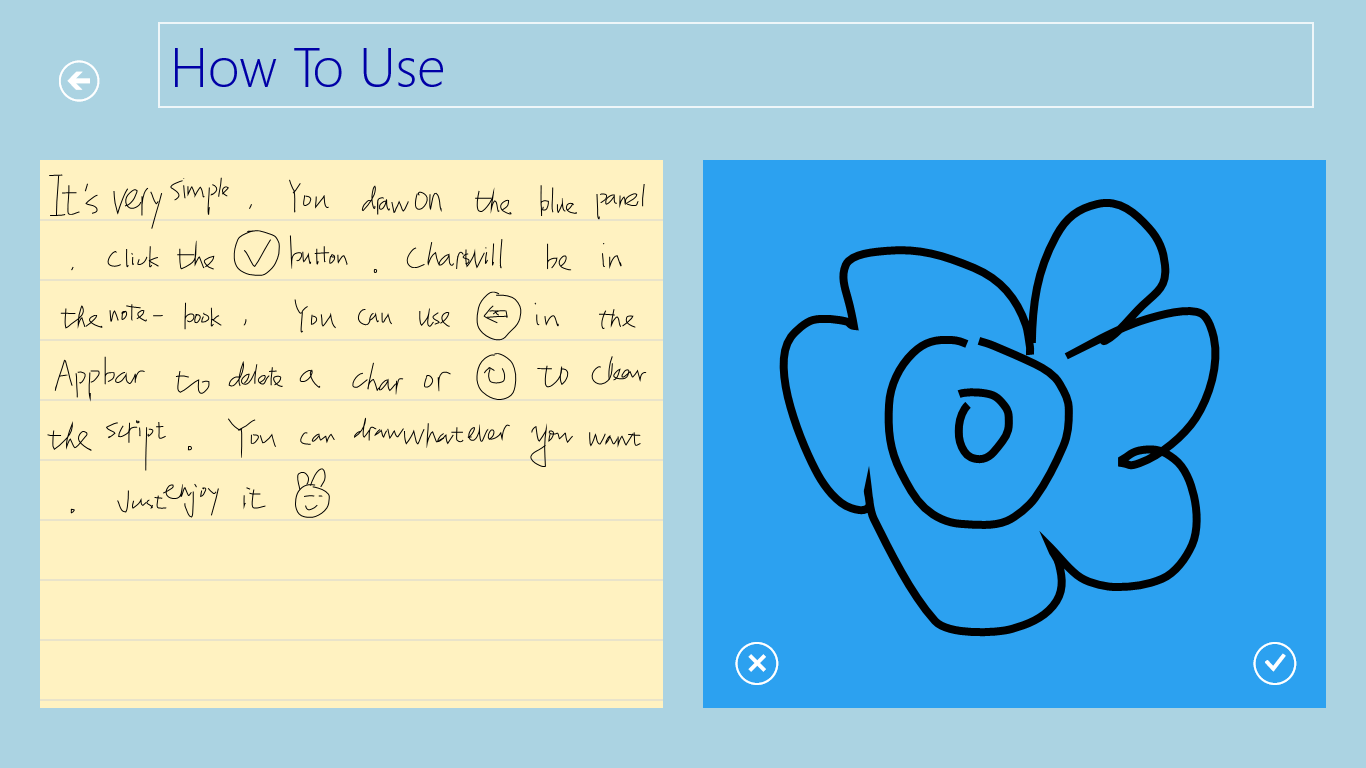 How To Use
It's very simple. You draw on the blue panel
. Click the button. Char will be in
the note-book. You can use in the
Appbar to delete a char or to clear
the script. You can draw whatever you want
. Just enjoy it